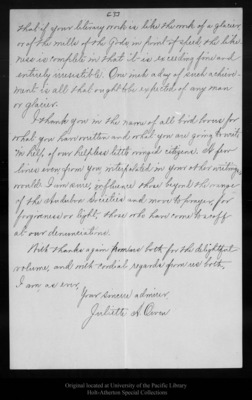 632
that if your literary work is like the work of a glacier
or of the mills of the Gods, in point of speed, the like-
ness is complete in that it is exceeding fine and
entirely irresistible. One such day of such achieve-
ment is all that ought to be expected of any man
or glacier.
I thank you in the name of all bird lovers for
what you have written and what you are going to write
in help of our helpless little winged citizens. A few
lines even from you interpolated in your other writings
would I am sure, influence those beyond the range
of the Audubon Societies and move to prayers for
forgiveness or light, those who have come to scoff
at our denunciations.
With thanks again from us both for the delightful
volume, and with cordial regards from us both,
I am, as ever,
Your sincere admirer
Juliette A. Owen
Original located at University of the Pacific Library
Holt-Atherton Special Collections